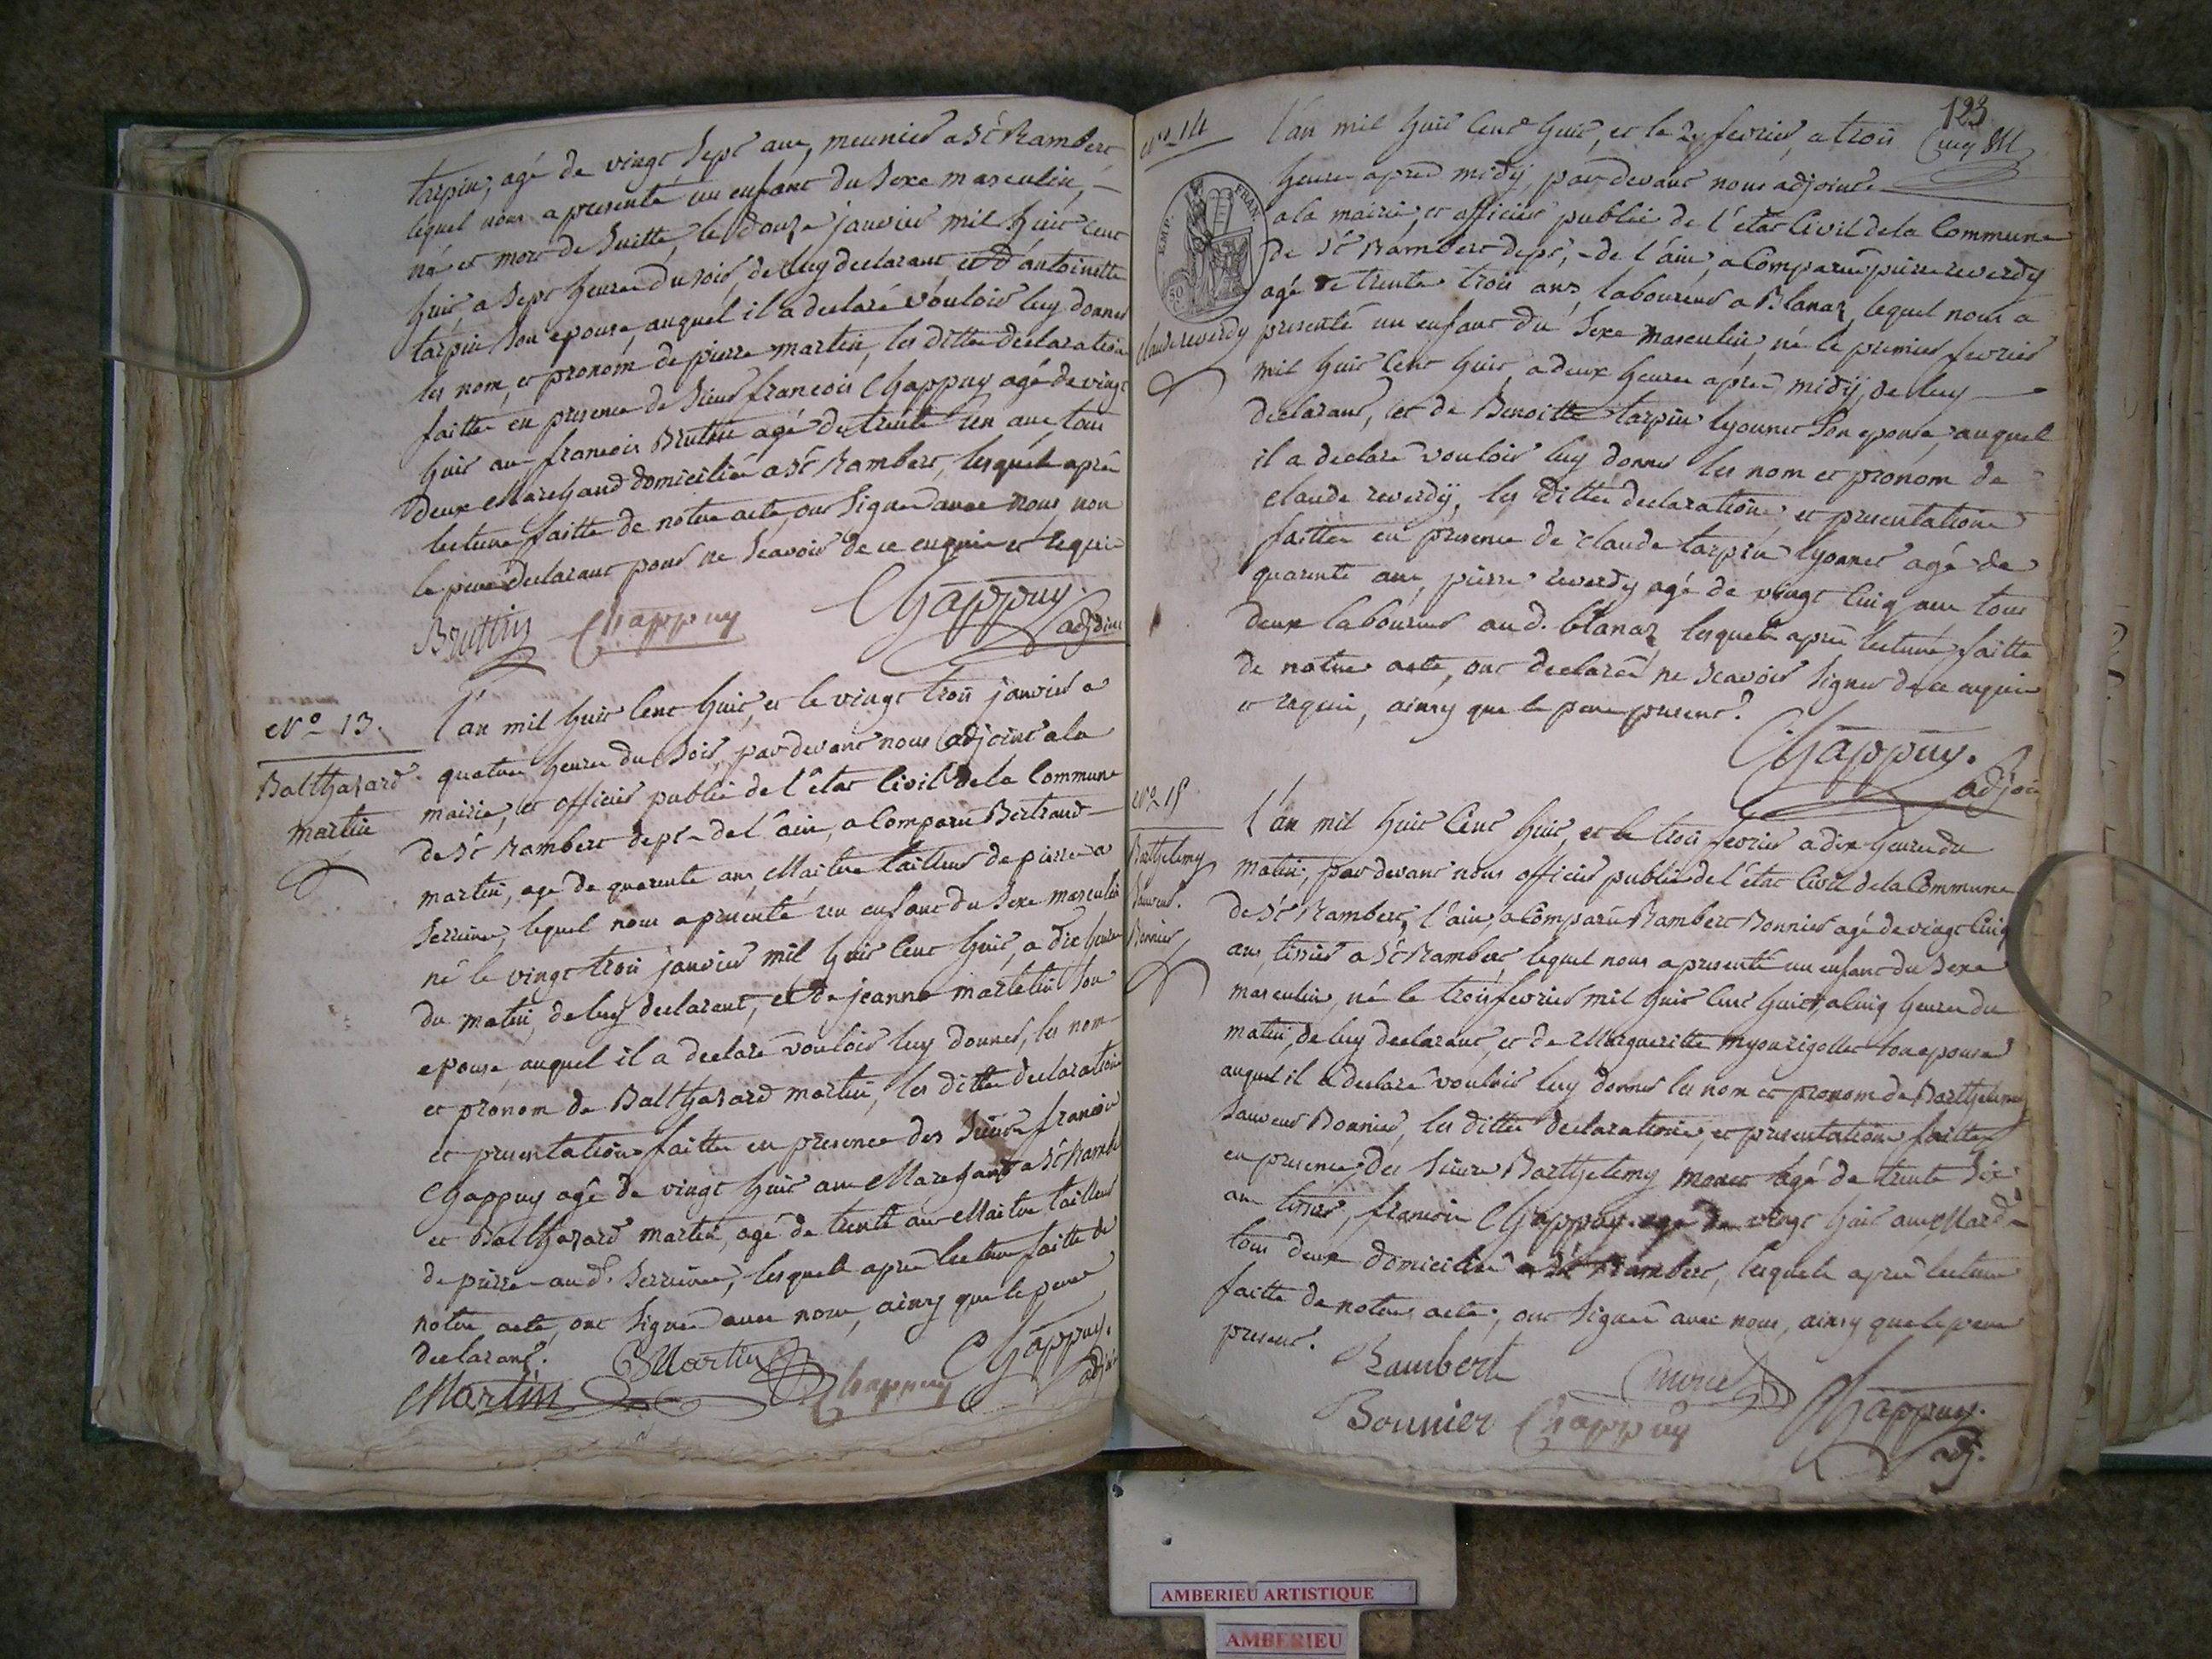 tarpin, agé de vingt sept ans, meunier a St Rambert
lequel nous a presenté un enfant du sexe masculin,
né et mort de suitte, le douze janvier mil huit cent
huit, a sept heures du soir, de luy declarant et d'antoinette
tarpin son epouse, auquel il a declaré vouloir luy donner
les nom, et pronom de pierre martin, les dittes declaration
faittes en presence de sieur francois Chappuy agé de vingt
huit ans francois Bruttin agé de trente un ans, tous
deux Marchand domiciliés a St Rambert, lesquels après
lecture faitte de notre acte, ont signés avec nous non
le pere declarant pour ne scavoir de ce enquis et requis
Bruttin Chappuy Chappuy.
adjoint
N° 13.
Balthazard
martin
l'an mil huit cent huit, et le vingt trois janvier a
quatre heures du soir, par devant nous adjoint a la
mairie, et officier public de l'etat Civil de la Commune
de St Rambert dept de l'ain, a Comparu Bertrand
martin, agé de quarente ans, Maitre tailleur de pierre a
Serrieres, lequel nous a presenté un enfant du sexe masculin
né le vingt trois janvier mil huit cent huit, a dix heures
du matin, de luy declarant, et de jeanne martelin son
epouse, auquel il a declaré vouloir luy donner, les nom
et pronom de Balthazard martin, les dittes declaration
et presentation faittes en presence des sieurs francois
Chappuy agé de vingt huit ans Marchand a St Rambert
et Balthazard martin, agé de trente ans Maitre tailleur
de pierre aud. Serrieres, lesquels après lecture faitte de
notre acte, ont signés avec nous, ainsy que le pere
declarant. Martin Chappuy.
Martin Chappuy adjoint
123
N° 14
l'an mil huit cent huit, et le 2 fevrier, a trois
heures après midy par devant nous adjoint
EMP. FRAN.
a la mairie, et officier public de l'etat Civil de la Commune
de St Rambert dept, de l'ain, a Comparu pierre reverdy
agé de trente trois ans, laboureur a Blanaz, lequel nous a
claude reverdy
presenté un enfant du sexe masculin, né le premier fevrier
mil huit cent huit, a deux heures après midy, de luy
declarant, et de Benoitte tarpin lyonnet son epouse, auquel
il a declaré vouloir luy donner les nom et pronom de
claude reverdy, les dittes declarations, et presentations
faittes en presence de claude tarpin lyonnet agé de
quarente ans, pierre reverdy agé de vingt cinq ans tous
deux laboureur aud. blanaz, lesquels après lecture faitte
de notre acte, ont declarés ne scavoir signer de ce enquis
et requis, ainsy que le pere present.
Chappuy.
adjoint
N° 15
Barthelemy
Sauveur
Bonnier
l'an mil huit cent huit, et le trois fevrier a dix heures du
matin, par devant nous officier public de l'etat Civil de la Commune
de St Rambert, l'ain, a Comparu Rambert Bonnier agé de vingt cinq
ans, tissier a St Rambert, lequel nous a presenté un enfant du sexe
masculin, né le trois fevrier mil huit cent huit, a cinq heures du
matin, de luy declarant, et de Margueritte son epouse
auquel il a declaré vouloir luy donner les nom et pronom de Barthelemy
Sauveur Bonnier, les dittes declarations, et presentations faittes
en presence des sieurs Barthelemy agé de trente six
ans tissier, francois Chappuy agé de vingt huit ans Mard
tous deux domiciliés a St Rambert, lesquels après lecture
faitte de notre acte, ont signés avec nous, ainsy que le pere
present. Rambert
Bonnier Chappuy Chappuy.
adj.
AMBERIEU ARTISTIQUE
AMBERIEU